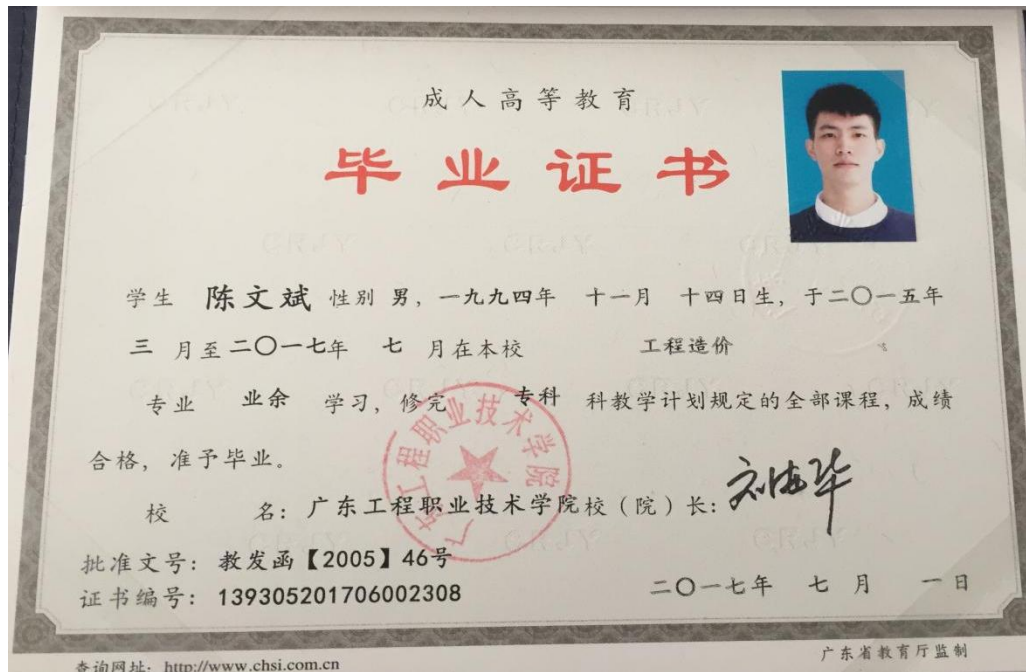 成人高等教育
毕业证书
学生 陈文斌 性别 男，一九九四年 十一月 十四日生，于二〇一五年
三 月至二〇一七年 七 月在本校 工程造价
专业 业余 学习，修完 专科 科教学计划规定的全部课程，成绩
合格，准予毕业。
广东工程职业技术学院
校 名：广东工程职业技术学院校（院）长：
批准文号：教发函【2005】46号
证书编号：139305201706002308
二〇一七年 七 月 一日
查询网址：http://www.chsi.com.cn
广东省教育厅监制